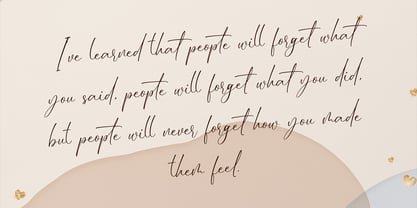 I've learned that people will forget what
you said, people will forget what you did,
but people will never forget how you made
them feel.